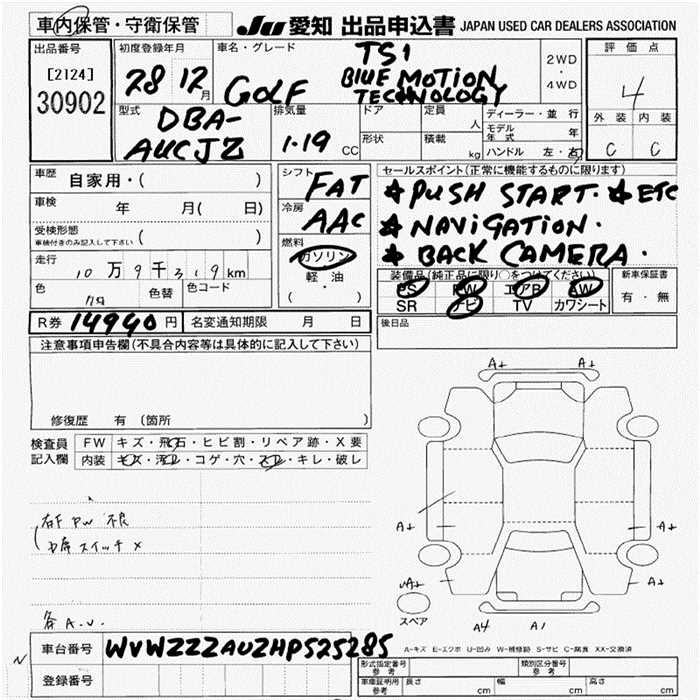 車内保管・守衛保管
JU 愛知 出品申込書 JAPAN USED CAR DEALERS ASSOCIATION
出品番号 初度登録年月 車名・グレード 評価点
[2124]
30902
28 12月
GOLF
TS1
BLUE MOTION
TECHNOLOGY
2WD
・
4WD
4
外装 内装
C C
型式
DBA-
AUCJZ
排気量
1.19 CC
ドア
形状
定員 人
積載 kg
ディーラー・並行
モデル年式 年
ハンドル 左・右
車歴 自家用・( )
車検 年 月( 日)
受検形態
車検付きのみ記入して下さい ( )
走行
10万9千319km
色 色替 色コード
シフト
FAT
冷房
AAC
燃料
ガソリン
軽・油
( ・ )
セールスポイント(正常に機能するものに限ります)
★PUSH START. ★ETC
★NAVIGATION.
★BACK CAMERA.
装備品(純正品に限り○をつけてください)
PS PW エアB AW
SR ナビ TV カワシート
新車保証書
有・無
R券 14940円 名変通知期限 月 日
後日品
注意事項申告欄(不具合内容等は具体的に記入して下さい)
修復歴 有 (箇所 )
検査員
記入欄
FW キズ・飛石・ヒビ割・リペア跡・X要
内装 キズ・汚レ・コゲ・穴・スレ・キレ・破レ
右F PW 不良
スイッチ X
各A.U.
A+
A+
A+
A+
A+
スペア
A4 A1
A-キズ E-エクボ U-凹み W-補修跡 S-サビ C-腐食 XX-交換済
車台番号 WVWZZZAUZHP525285
登録番号
型式指定番号 参考
類別区分番号 参考
車庫証明用 参考 長さ cm 幅 cm 高さ cm